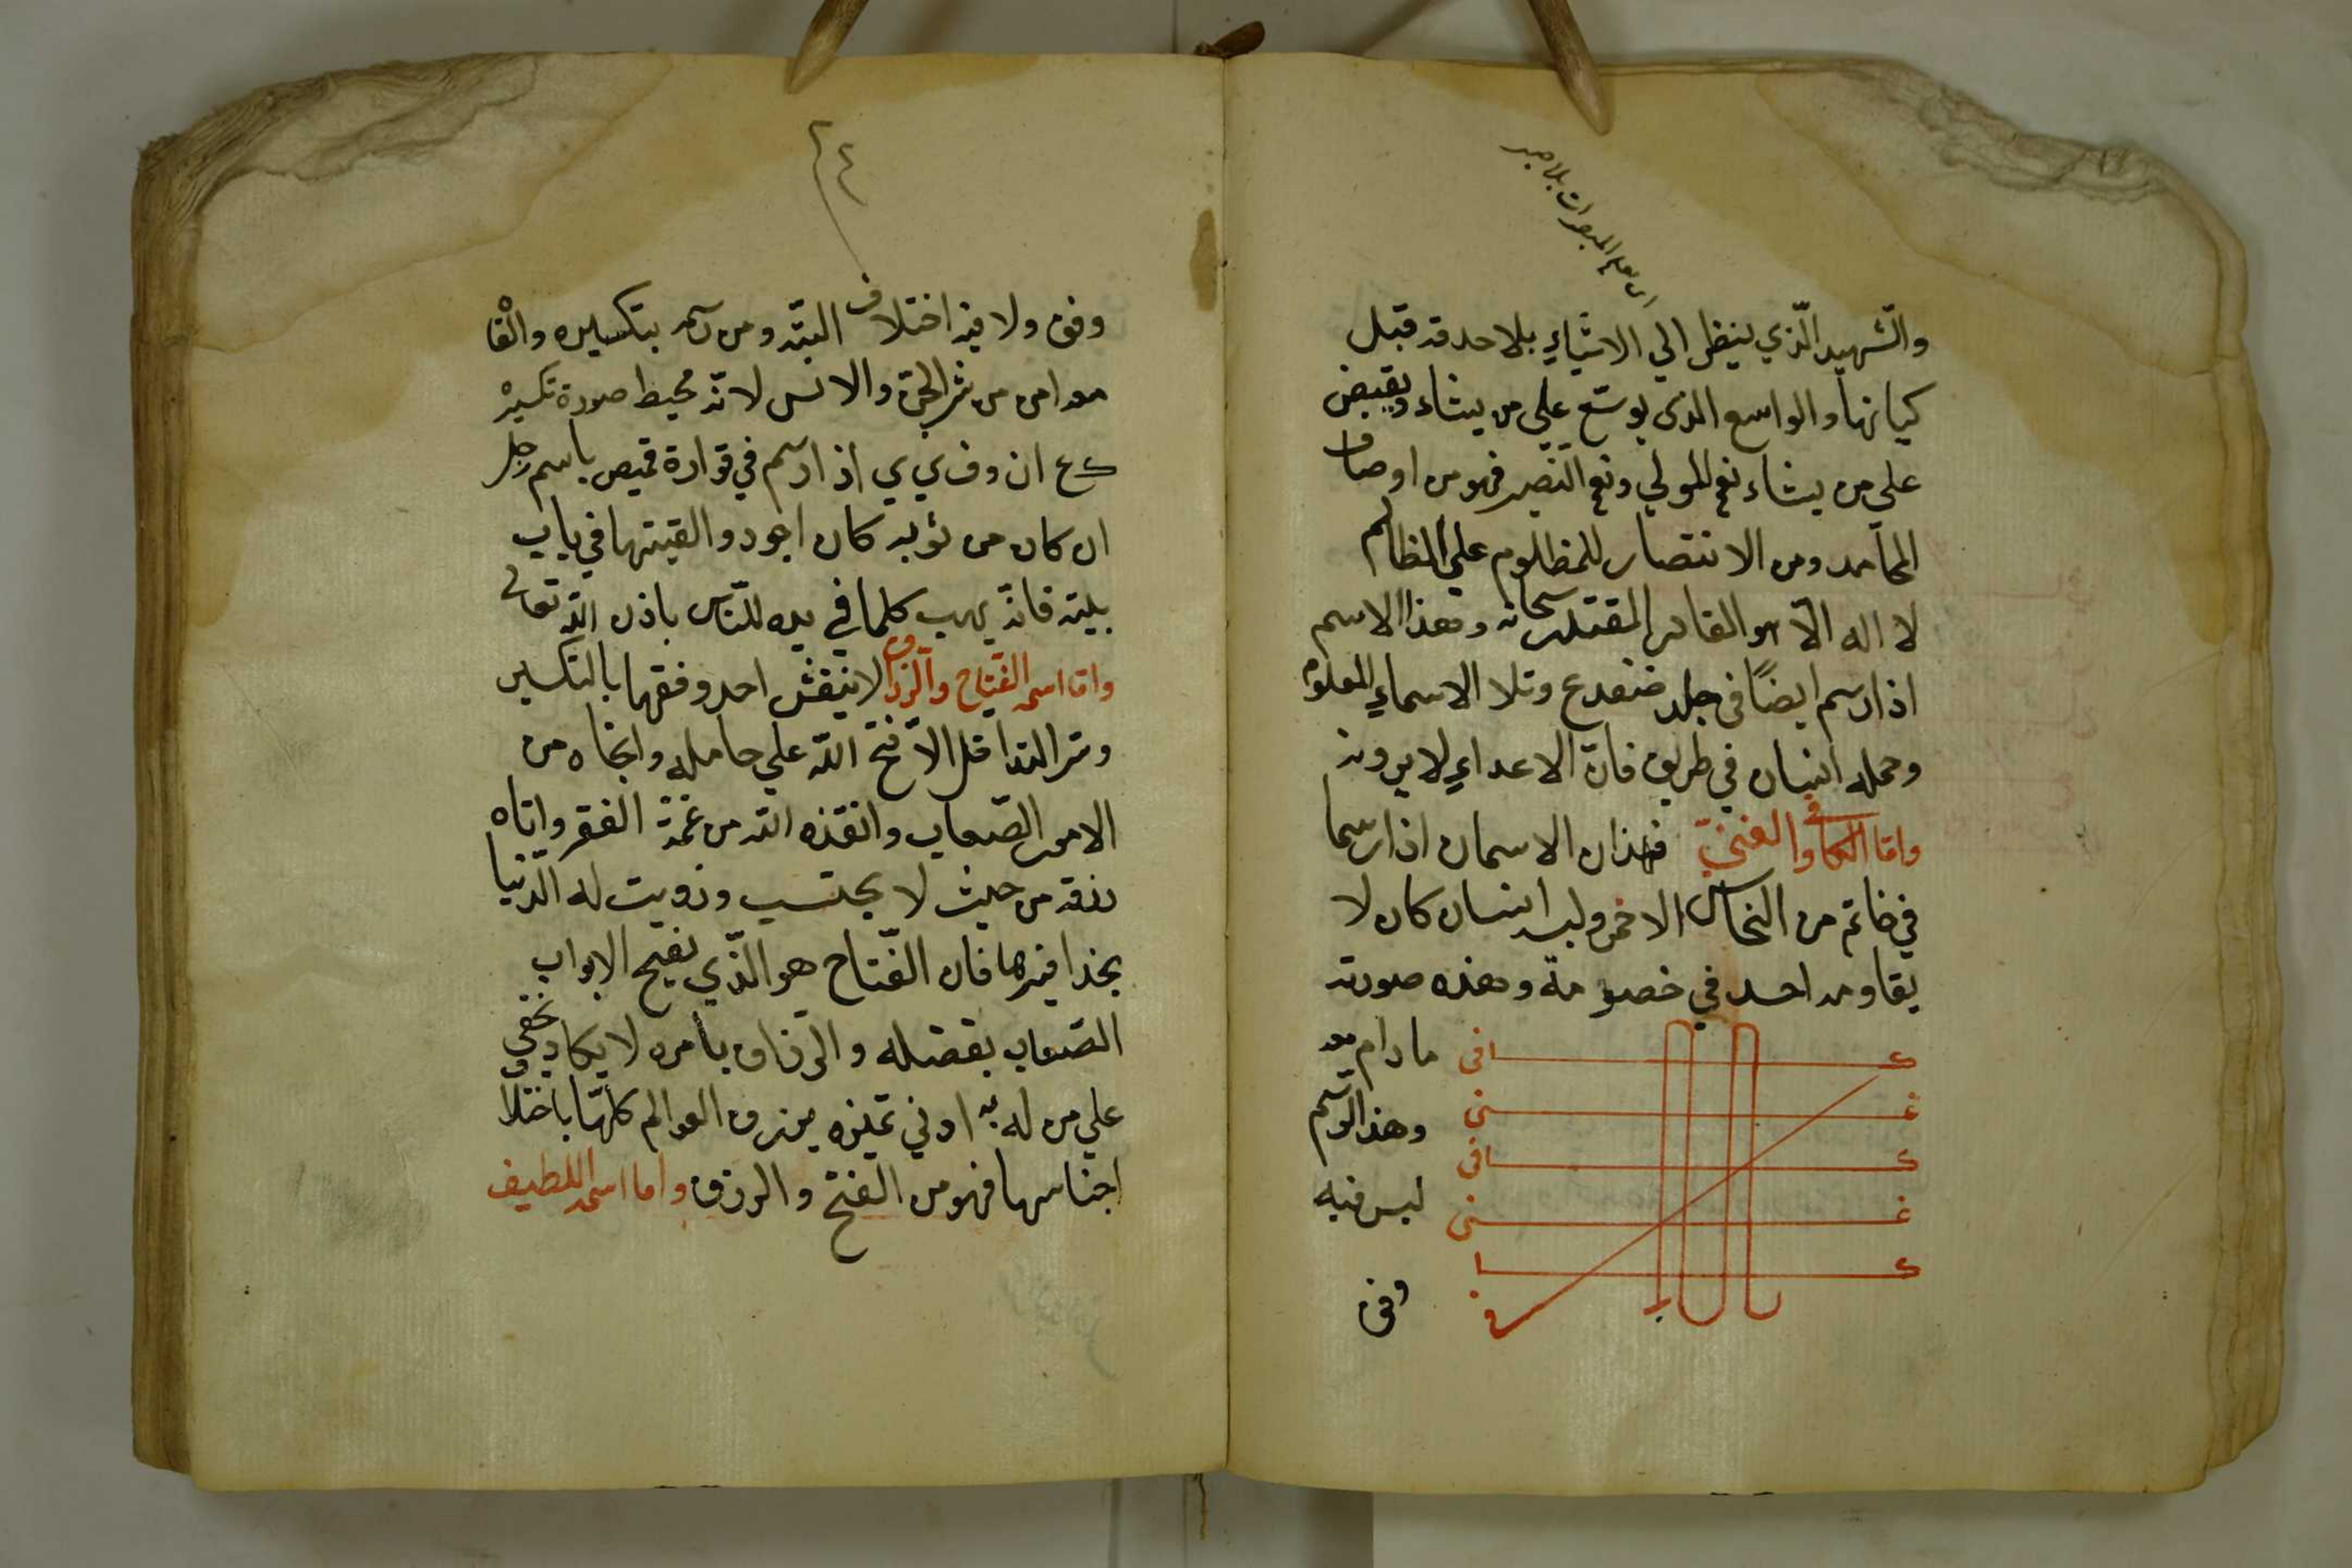 والشهيد الّذي ينظر الي الاشياءِ بلا حدقه قبل
كيانها والواسع الذى يوسّع علي من يشاء ويقبض
علي من يشاء نعم المولي ونعم النّصير فهو من اوصاف
المحامد ومن الانتصار للمظلوم علي الظالم
لا اله الّا هو القادر المقتدر سبحانه وهذا الاسم
اذا رسم ايضًا في جلد ضفدع وتلا الاسماءِ المعلومه
وحمله انسان في طريق فانّ الاعداءِ لا يرونه
وامّا الكافي والغنيّ فهذان الاسمان اذا رسما
في خاتم من النحاس الاحمر ولبسه انسان كان لا
يقاومه احد في خصومة وهذه صورته
ك افى ما دام معه
غ نى وهذا الرّسم
ك افى ليس فيه
غ نى
ك ا
وفق
٢٤
وفق ولا فيه اختلاف البتّه ومن رسمه بتكسيره والقاه
معه امن من شر الجنّ والانس لانّه محيط صورة تكسيره
ك ع ان وف ي ي اذا رسم في قوارة قميص باسم رجل
ان كان من ثوبه كان اجود والقيتها في باب
بيته فانّه يهب كلما في يده للنّاس باذن الله تعالى
وامّا اسمه الفتّاح والرّزاق لا ينقش احد وفقها بالتكسير
الا فتح الله علي حامله وانجاه من
الامور الصّعاب وانقذه الله من غمّة الفقر واتاه
رزقه من حيث لا يحتسب وزويت له الدّنيا
بحذافيرها فان الفّتاح هو الّذي يفتح الابواب
الصّعاب بفضله والرزاق بامره لا يكاد يخفى
علي من له ادني تميز ويرزق العوالم كلّها باختلاف
اجناسها فهو من الفتح والرزق واما اسمه اللطيف